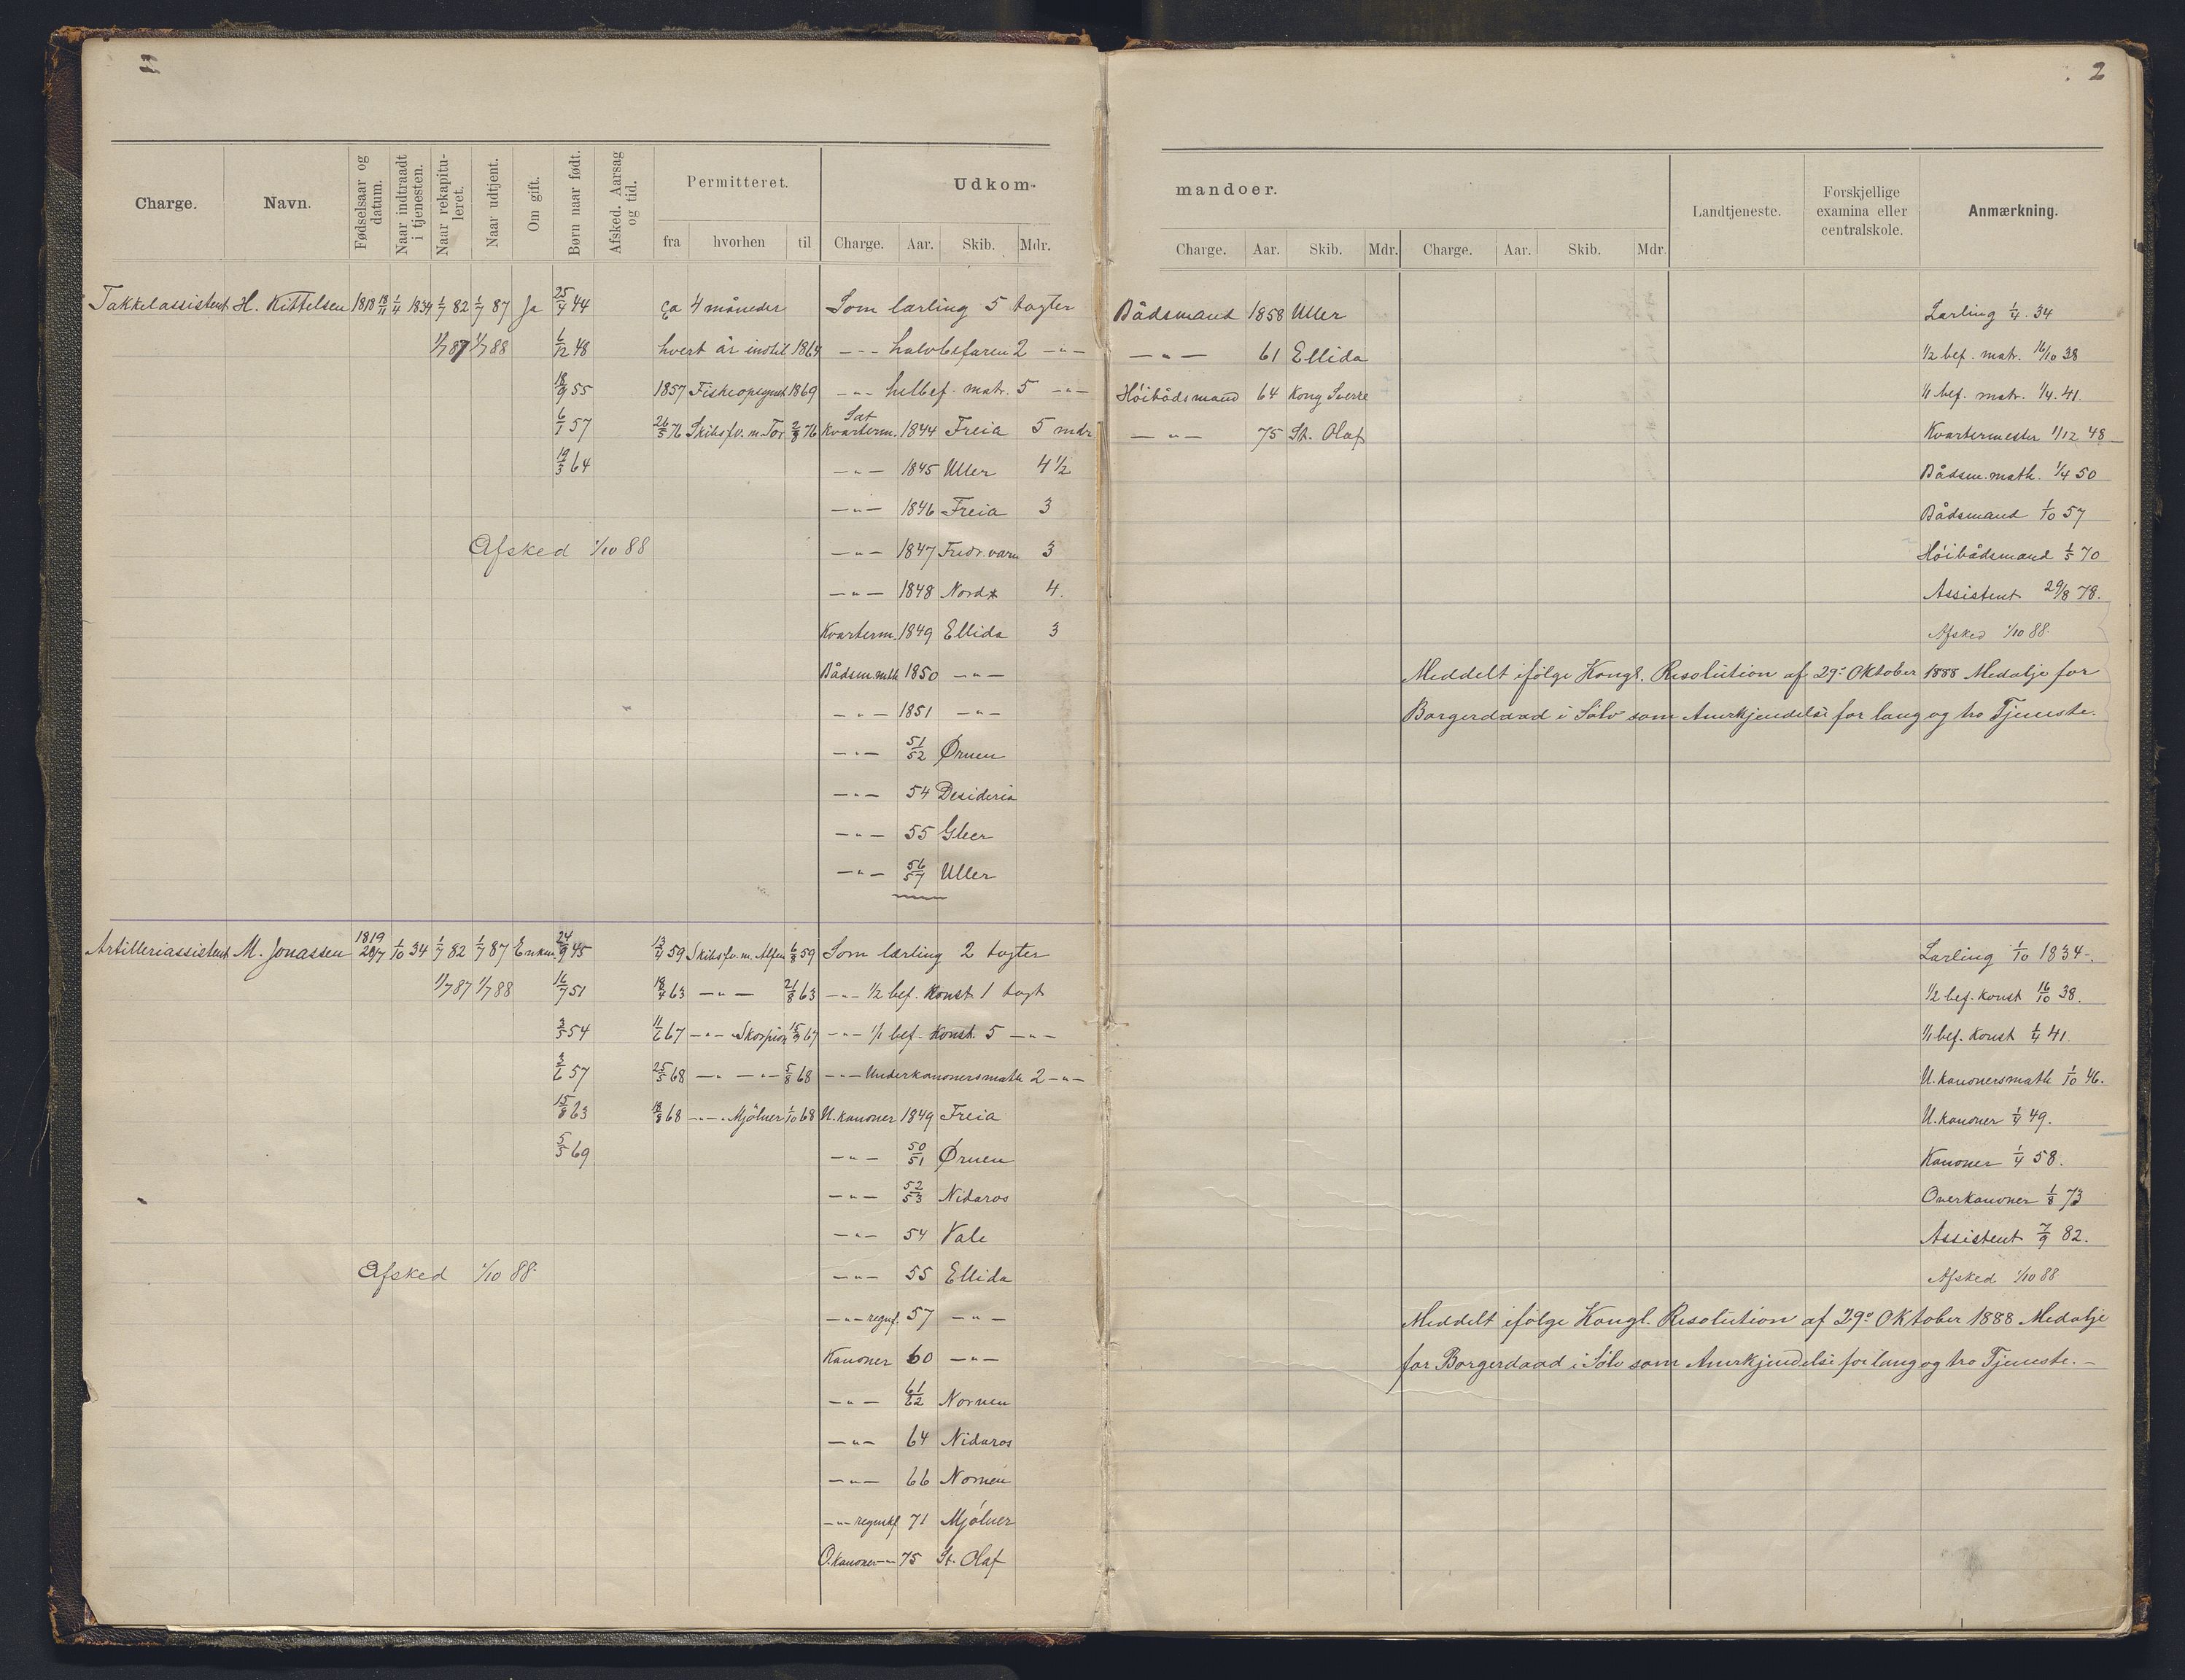 2
Charge. Navn. Fødselsaar og datum. Naar indtraadt i tjenesten. Naar rekapituleret. Naar udtjent. Om gift. Børn naar født. Afsked. Aarsag og tid. Permitteret. Udkom-
fra hvorhen til Charge. Aar. Skib. Mdr.
mandoer. Landtjeneste. Forskjellige examina eller centralskole. Anmærkning.
Charge. Aar. Skib. Mdr. Charge. Aar. Skib. Mdr.
Takkelassistent H. Kittelsen 1818 18/11 1/4 1834 1/7 82 1/7 87 Ja 25/4 44 ca 4 måneder Som lærling 5 togter Bådsmand 1858 Uller Lærling 1/4 34
1/7 87 1/7 88 6/12 48 hvert år indtil 1864 -"- halvbefaren 2 -"- -"- 61 Ellida 1/2 bef. matr. 16/10 38
18/9 55 1857 Fiskeopsynet 1869 -"- helbef. matr. 5 -"- Høibådsmand 64 Kong Sverre 1/1 bef. matr. 1/4 41.
6/1 57 26/5 76 Skibsfv. m. Tor 2/8 76 Sat Kvarterm. 1844 Freia 5 mdr -"- 75 St. Olaf Kvartermester 1/12 48
19/3 64 -"- 1845 Uller 4 1/2 Bådsm.math. 1/4 50
-"- 1846 Freia 3 Bådsmand 1/10 57
Afsked 1/10 88 -"- 1847 Fredr.værn 3 Høibådsmand 1/5 70
-"- 1848 Nord* 4. Assistent 29/8 78.
Kvarterm. 1849 Ellida 3 Afsked 1/10 88.
Bådsm.mth 1850 -"- Meddelt ifølge Kongl. Resolution af 29de Oktober 1888 Medalje for
-"- 1851 -"- Borgerdaad i Sölv som Anerkjendelse for lang og tro Tjeneste.
-"- 51/52 Ørnen
-"- 54 Desideria
-"- 55 Gleer
-"- 56/57 Uller
Artilleriassistent M. Jonassen 1819 28/7 1/10 34 1/7 82 1/7 87 Enkem. 24/9 45 13/4 59 Skibsfv. m. Alfen 6/8 59 Som lærling 2 togter Lærling 1/10 1834.
1/7 87 1/7 88 16/7 51 18/7 63 -"- 21/8 63 -"- 1/2 bef. Konst. 1 togt 1/2 bef. konst 16/10 38.
3/5 54 11/6 67 -"- Skorpion 15/9 67 -"- 1/1 bef. Konst. 5 -"- 1/1 bef. Konst 1/4 41.
3/6 57 25/5 68 -"- -"- 5/8 68 -"- Underkanonersmath 2 -"- U.kanonersmath 1/10 46.
15/8 63 18/8 68 -"- Mjølner 1/10 68 U.kanoner 1849 Freia U.kanoner 1/4 49.
5/5 69 -"- 50/51 Ørnen Kanoner 1/4 58.
-"- 52/53 Nidaros Overkanoner 1/8 73
-"- 54 Vale Assistent 7/9 82.
Afsked 1/10 88. -"- 55 Ellida Afsked 1/10 88.
-"- regnsf. 57 -"- Meddelt ifølge Kongl. Resolution af 29de Oktober 1888 Medalje
Kanoner 60 -"- for Borgerdaad i Sölv som Anerkjendelse for lang og tro Tjeneste. -
-"- 61/62 Nornen
-"- 64 Nidaros
-"- 66 Nornen
-"- regnskf 71 Mjølner
O.kanoner -"- 75 St. Olaf